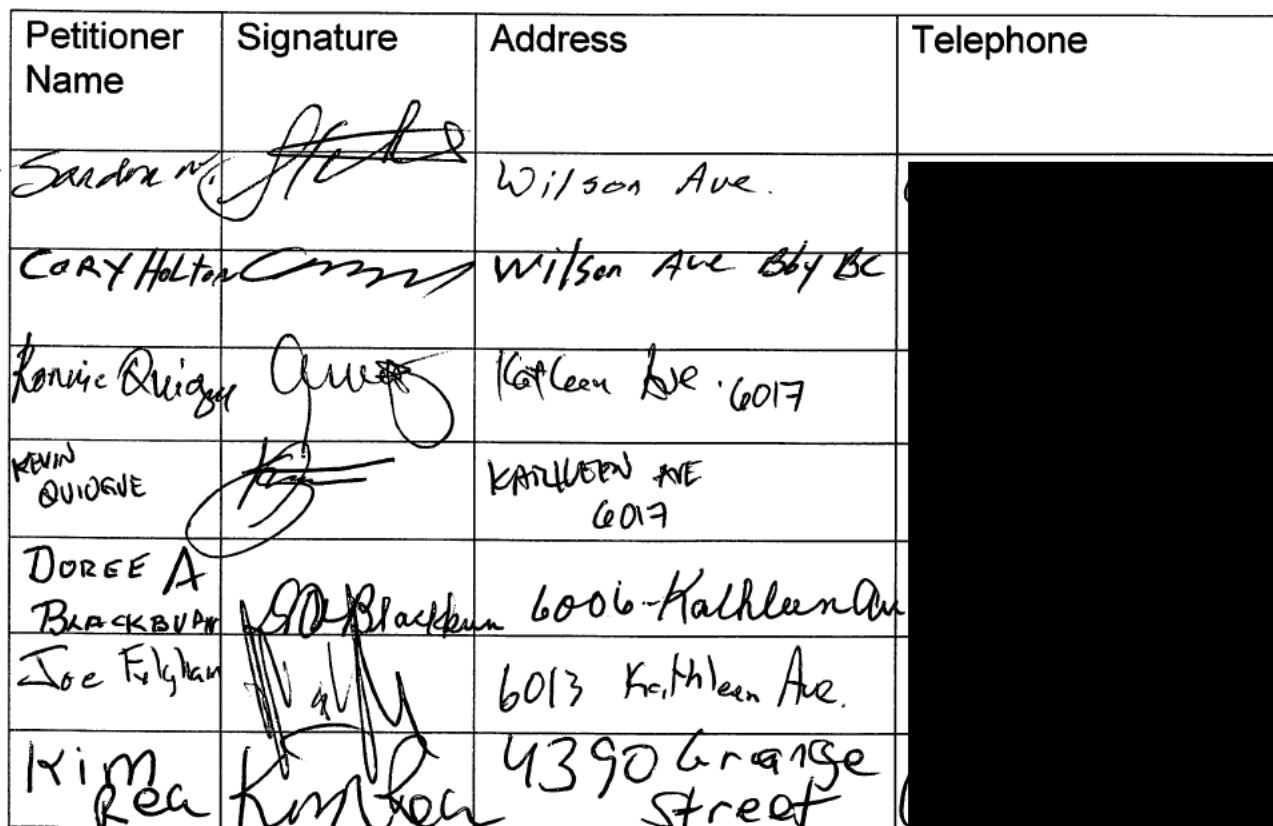 Petitioner Name Signature Address Telephone
Sandra N. Wilson Ave.
CORY HOLTON Wilson Ave Bby BC
Ronnie Kathleen Ave. 6017
KEVIN QUIOGUE KATHLEEN AVE 6017
DOREE A BLACKBURN Blackburn 6006-Kathleen Ave
Joe 6013 Kathleen Ave.
Kim Rea Kim Rea 4390 Grange Street